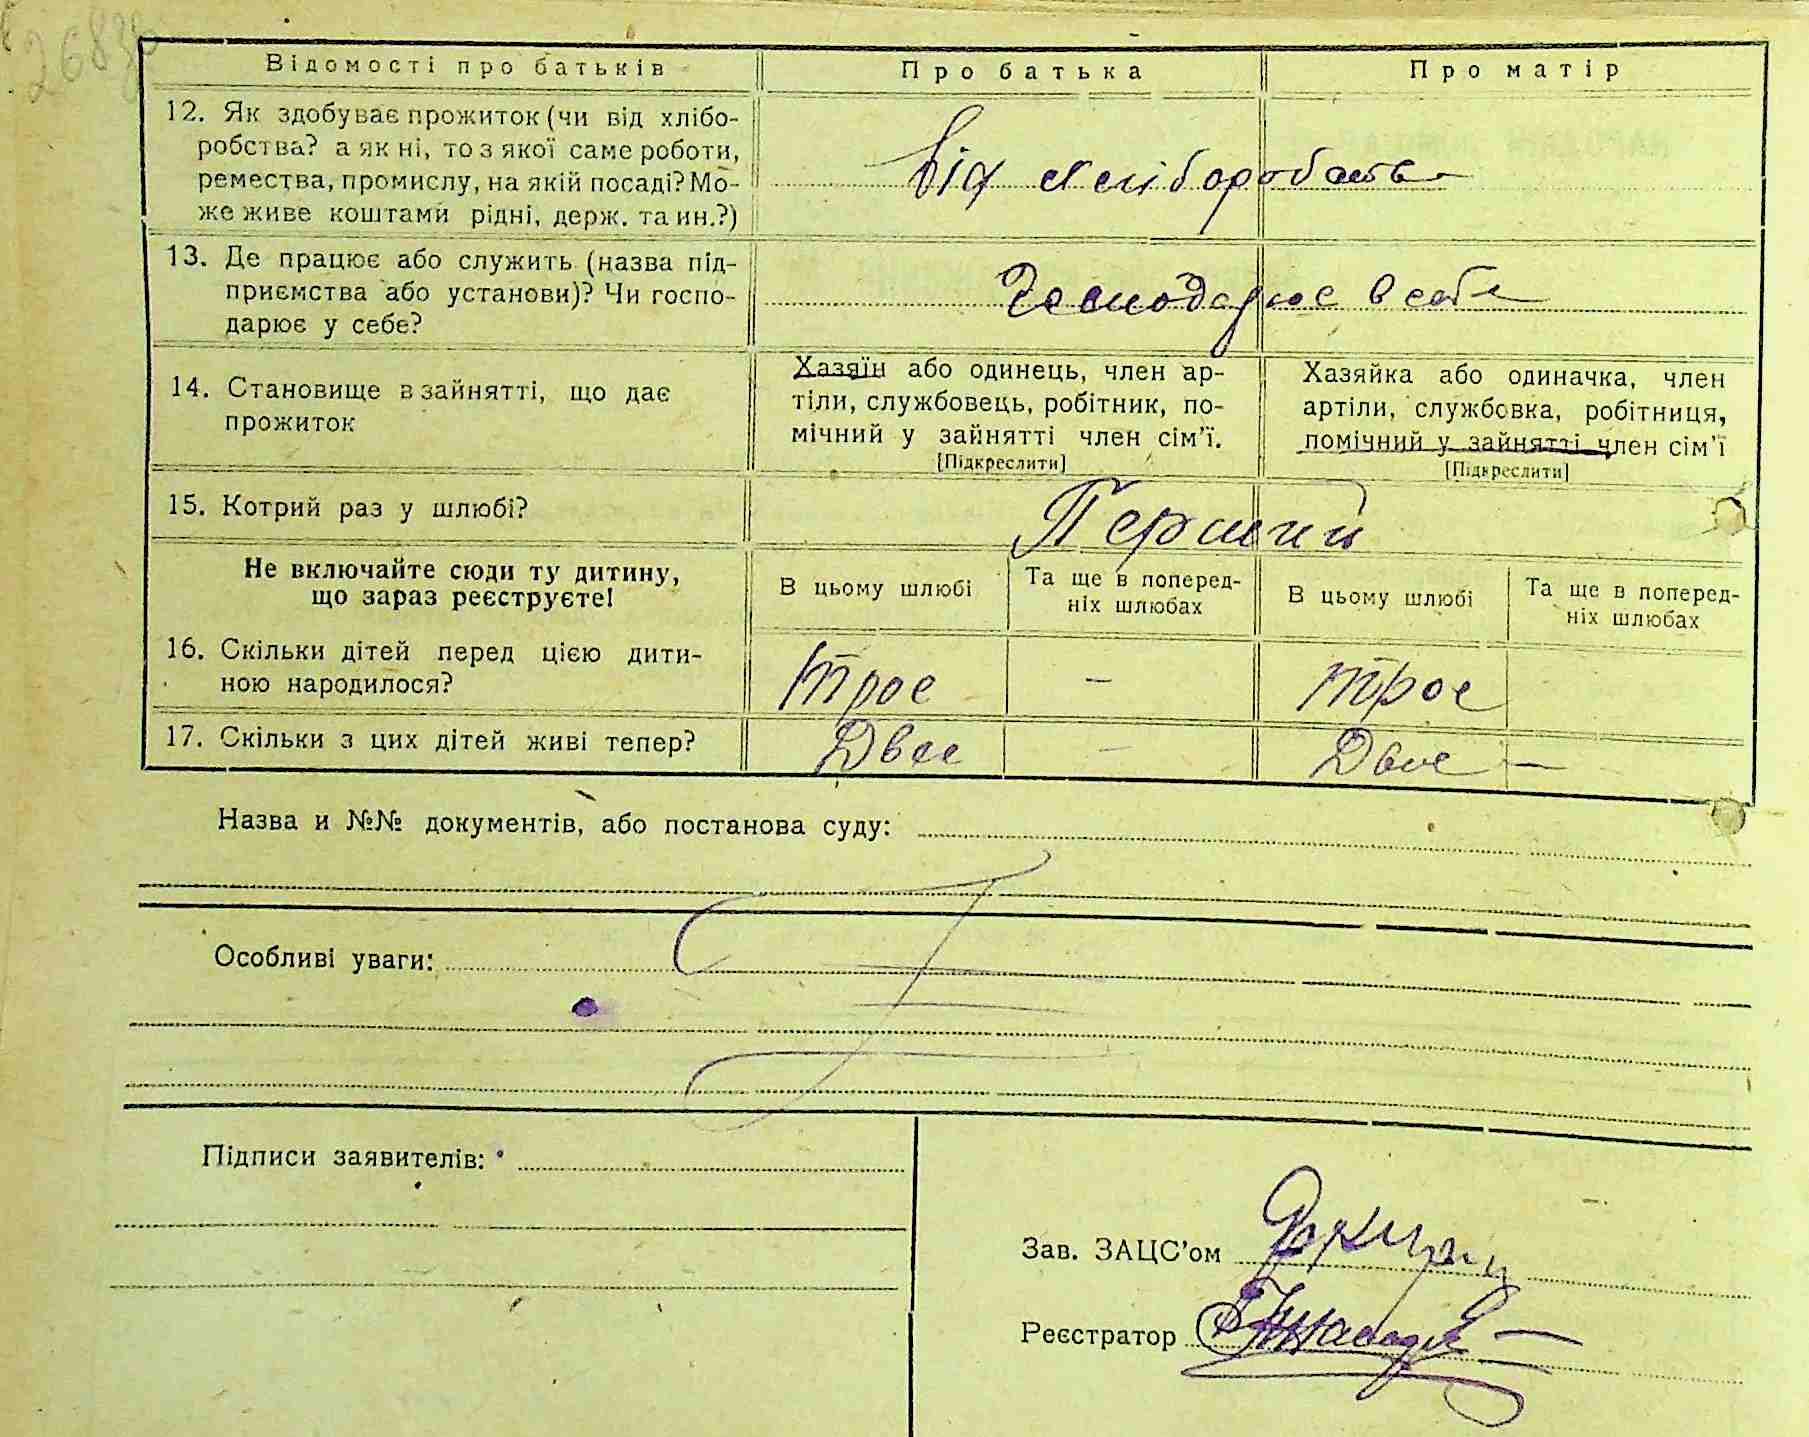 268зв
Відомості про батьків
Про батька
Про матір
12. Як здобуває прожиток (чи від хлібо-
робства? а як ні, то з якої саме роботи,
ремества, промислу, на якій посаді? Мо-
же живе коштами рідні, держ. та ин.?)
Від хліборобств
13. Де працює або служить (назва під-
приємства або установи)? Чи госпо-
дарює у себе?
Господарює в себе
14. Становище в зайнятті, що дає
прожиток
Хазяїн або одинець, член ар-
тіли, службовець, робітник, по-
мічний у зайнятті член сім’ї.
[Підкреслити]
Хазяйка або одиначка, член
артіли, службовка, робітниця,
помічний у зайнятті член сім’ї
[Підкреслити]
15. Котрий раз у шлюбі?
Перший
Не включайте сюди ту дитину,
що зараз реєструєте!
В цьому шлюбі
Та ще в поперед-
ніх шлюбах
В цьому шлюбі
Та ще в поперед-
ніх шлюбах
16. Скільки дітей перед цією дити-
ною народилося?
трое
–
трое
17. Скільки з цих дітей живі тепер?
Двое
–
Двое
–
Назва и №№ документів, або постанова суду:
Особливі уваги:
Підписи заявителів:
Зав. ЗАЦС’ом
Реєстратор